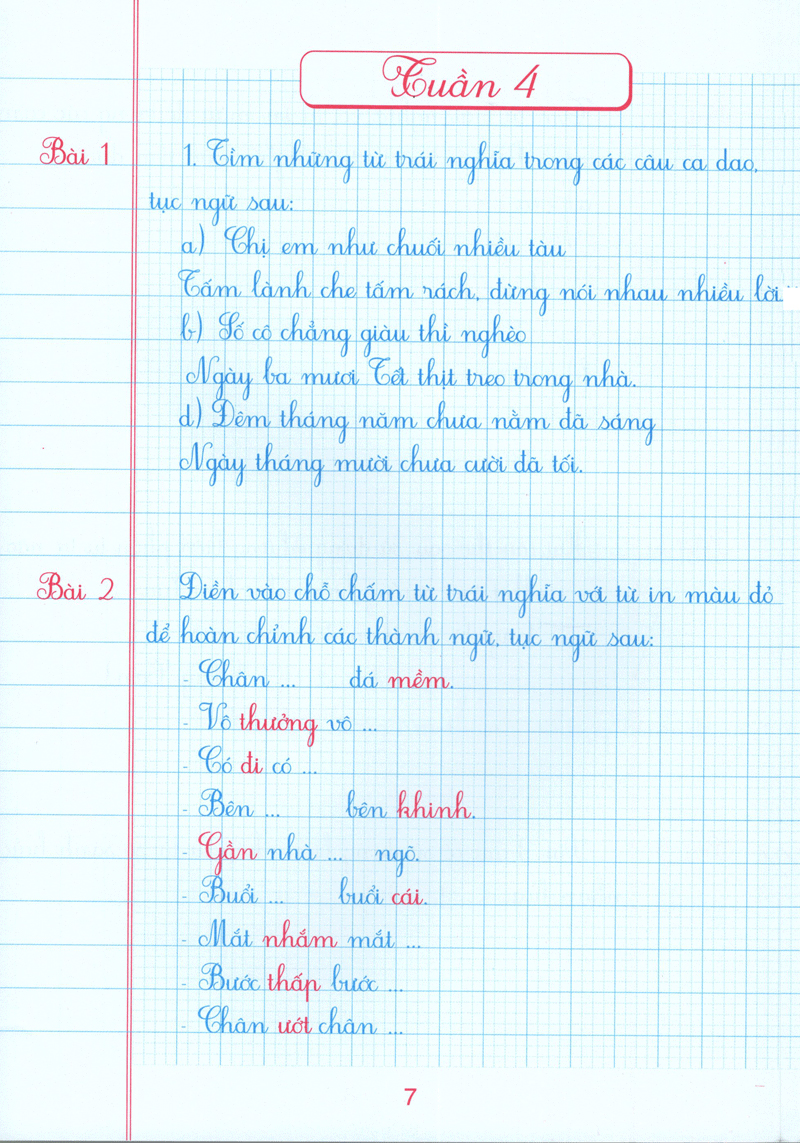 Tuần 4
Bài 1
1. Tìm những từ trái nghĩa trong các câu ca dao,
tục ngữ sau:
a) Chị em như chuối nhiều tàu
Tấm lành che tấm rách, đừng nói nhau nhiều lời.
b) Số cô chẳng giàu thì nghèo
Ngày ba mươi Tết thịt treo trong nhà.
d) Đêm tháng năm chưa nằm đã sáng
Ngày tháng mười chưa cười đã tối.
Bài 2
Điền vào chỗ chấm từ trái nghĩa với từ in màu đỏ
để hoàn chỉnh các thành ngữ, tục ngữ sau:
- Chân ... đá mềm.
- Vô thưởng vô ...
- Có đi có ...
- Bên ... bên khinh.
- Gần nhà ... ngõ.
- Buổi ... buổi cái.
- Mắt nhắm mắt ...
- Bước thấp bước ...
- Chân ướt chân ...
7